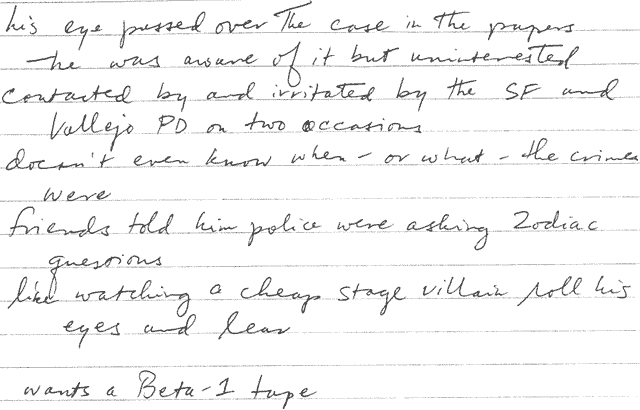 his eye passed over The case in the papers
- he was aware of it but uninterested
contacted by and irritated by the SF and
Vallejo PD on two occasions
doesn't even know when - or what - the crimes
were
friends told him police were asking Zodiac
questions
like watching a cheap stage villain roll his
eyes and lear
wants a Beta-1 tape